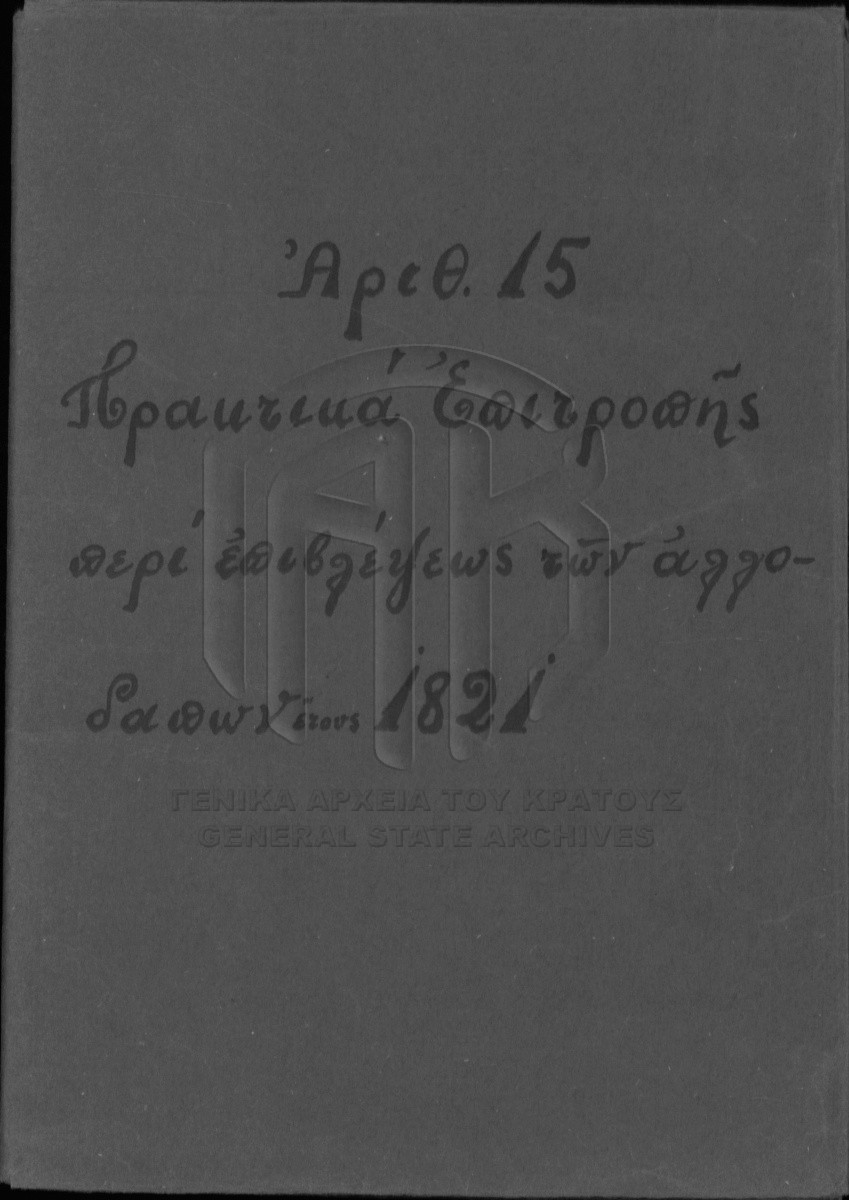 Ἀριθ. 15
Πρακτικά Ἐπιτροπῆς
περί ἐπιβλέψεως τῶν ἀλλο-
δαπῶν ἔτους 1821
ΓΕΝΙΚΑ ΑΡΧΕΙΑ ΤΟΥ ΚΡΑΤΟΥΣ
GENERAL STATE ARCHIVES